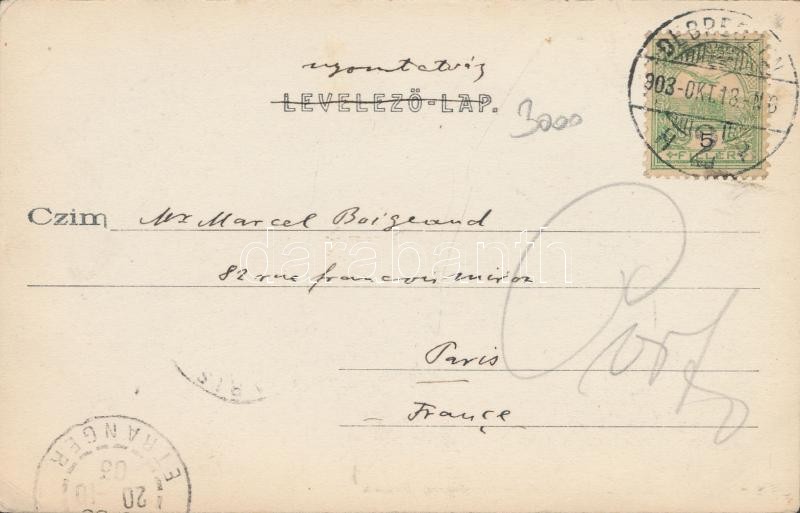 DEBRECZEN
903-OKT.18-N6
5
FILLÉR
2
nyomtatvány
LEVELEZŐ-LAP.
3000
Czim Mr Marcel Boigeaud
82 rue françois-miroz
Paris
France
darabanth
PARIS
ETRANGER
20-10
03